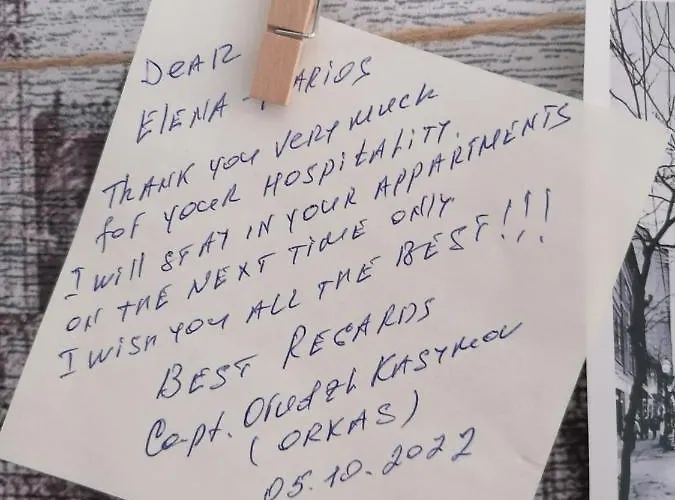 DEAR
ELENA - ARIOS
THANK you very much
for your HOSPITALITY.
I will STAY IN YOUR APPARTMENTS
ON THE NEXT TIME ONLY
I WISH YOU ALL THE BEST!!!
BEST REGARDS
Capt. Orudzh KASYMOV
(ORKAS)
05.10.2022